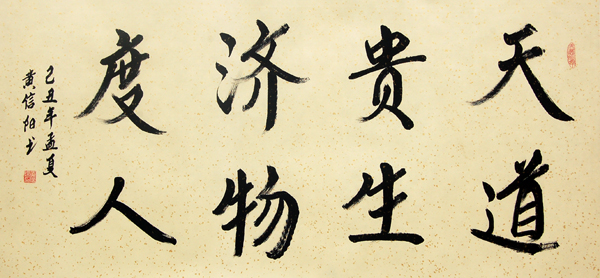 天道
贵生
济物
度人
己丑年孟夏
黄信阳书